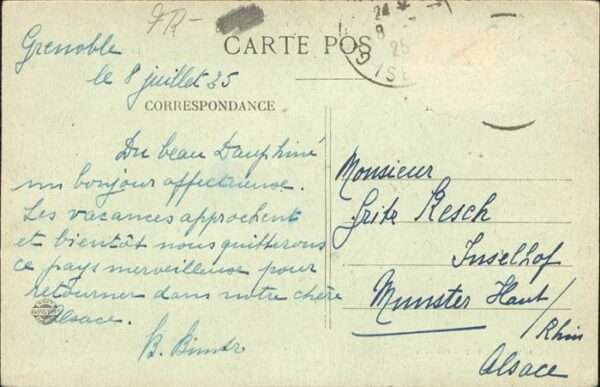 FR-
CARTE POS
24
8
25
ISE
Grenoble
le 8 juillet 25
CORRESPONDANCE
Du beau Dauphiné
un bonjour affectueuse.
Les vacances approchent
et bientôt nous quitterons
ce pays merveilleuse pour
retourner dans notre chère
Alsace.
B.
Monsieur
Fritz Resch
Inselhof
Munster Haut/
Rhin
Alsace